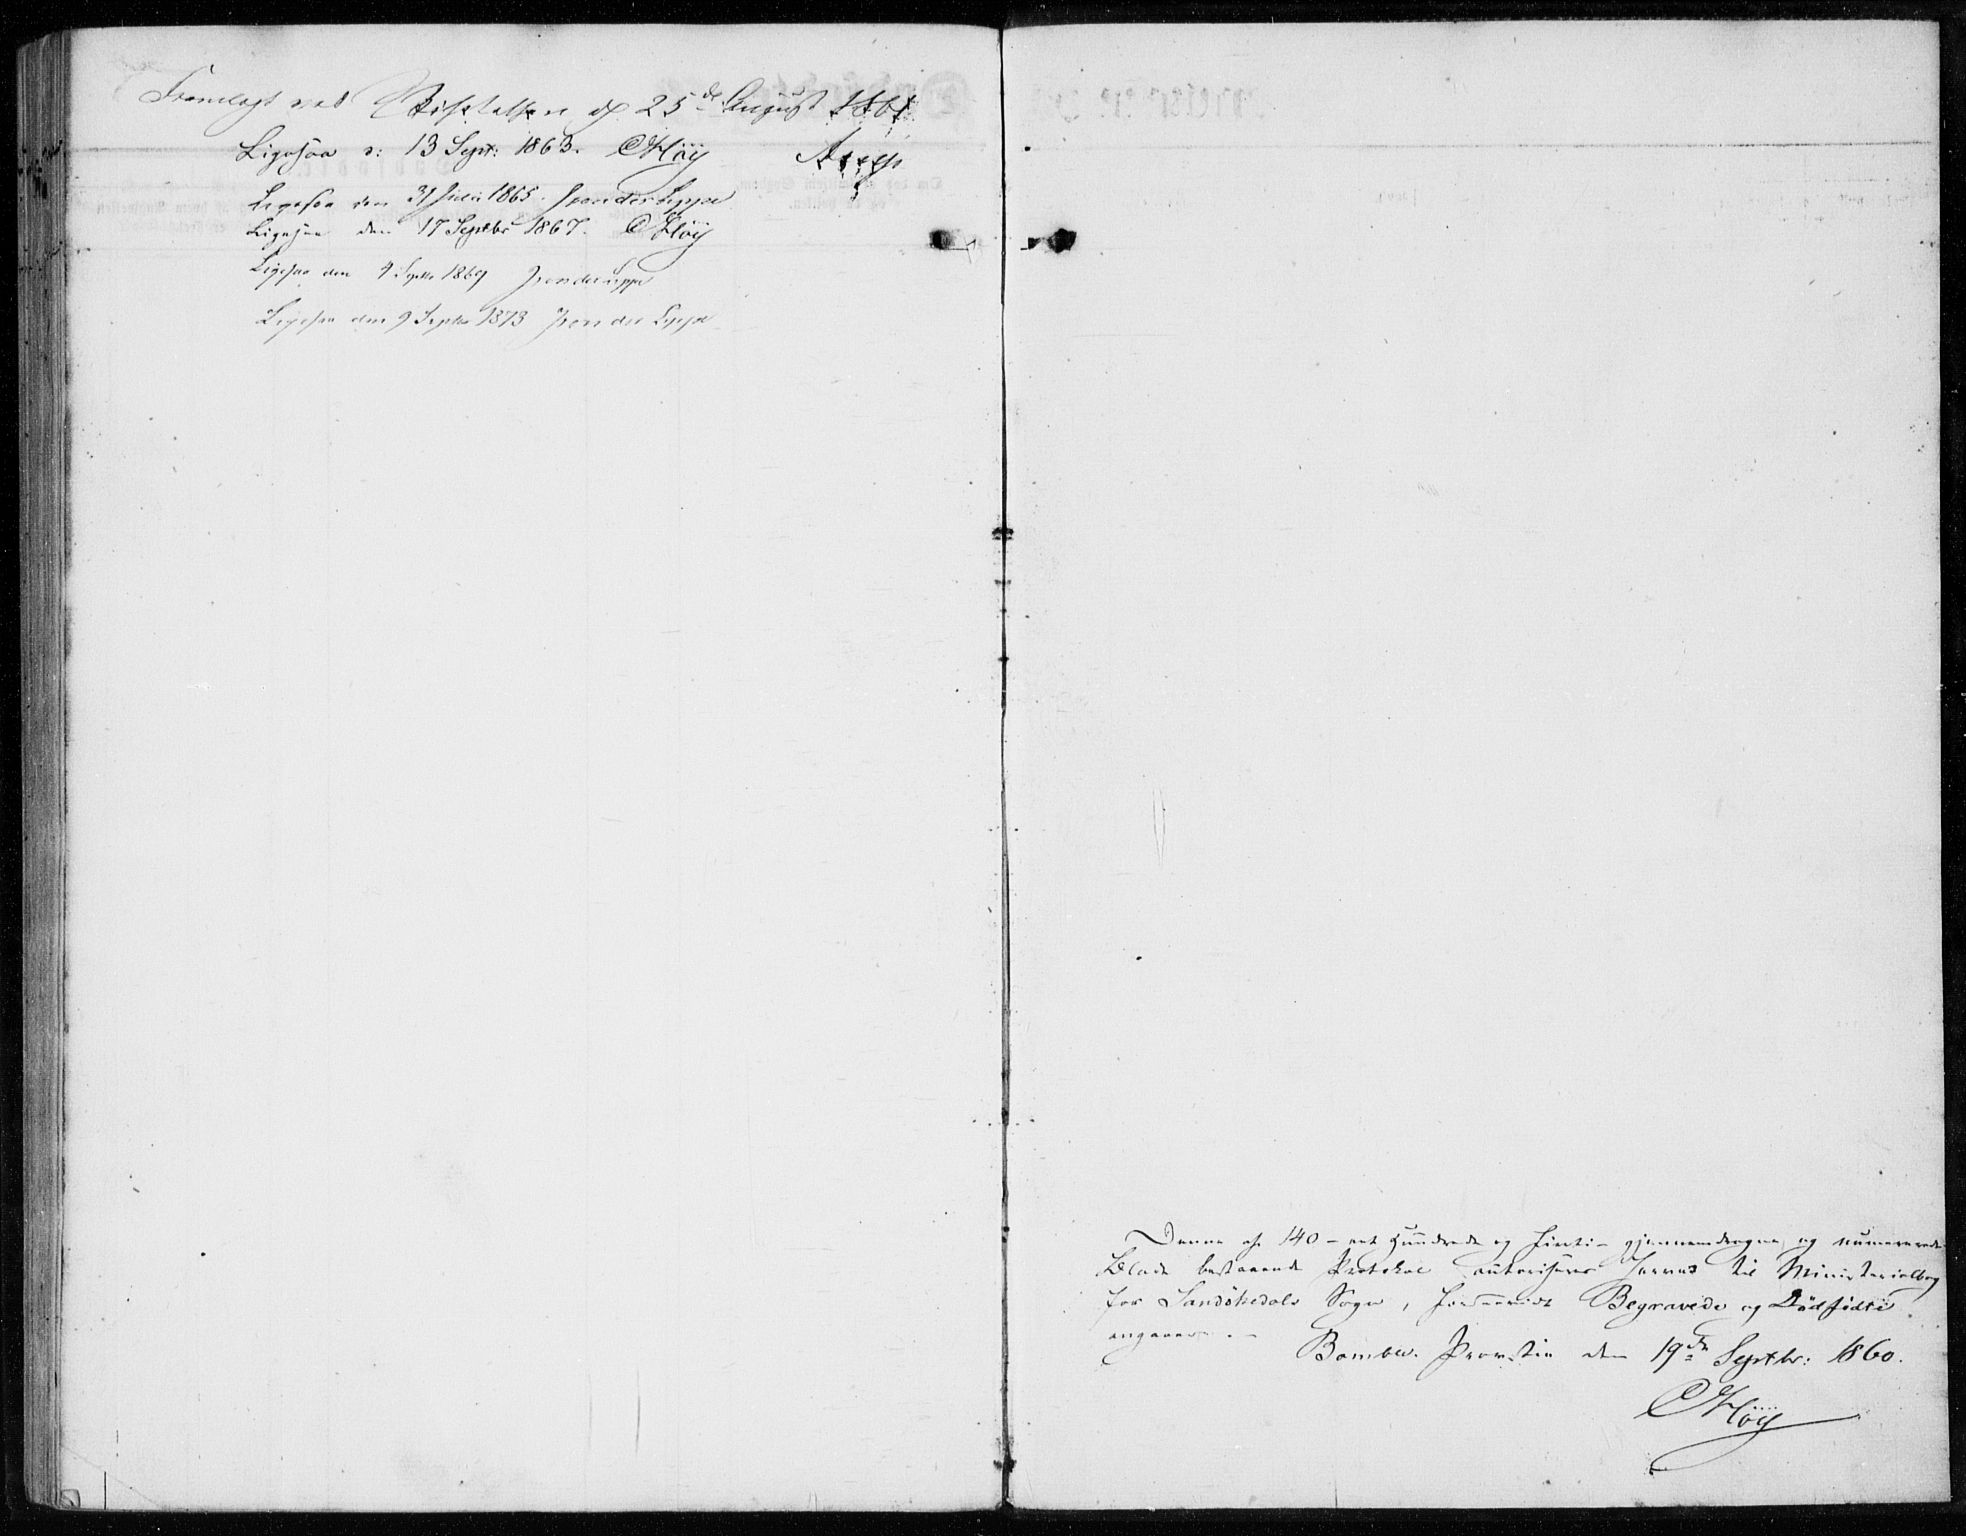 Fremlagt ved Visitatsen d 25de August 1861
Arup
Ligesaa d: 13 Sept: 1863. CHöy
Ligesaa den 31 Juli 1865. J von der Lippe
Ligesaa den 17 Septbr 1867. CHöy
Ligesaa den 4 Septbr 1869 J von der Lippe
Ligesaa den 9 Septbr 1873 J von der Lippe
Denne af 140 – eet Hundrede og Firti – gjennemdragne og numererede
Blade bestaaende Protokol autoriseres herved til Ministerialbog
for Sandökedals Sogn, forsaavidt Begravede og Dödfödte
angaaer. –
Bamble Provsti den 19de Septbr: 1860.
CHöy